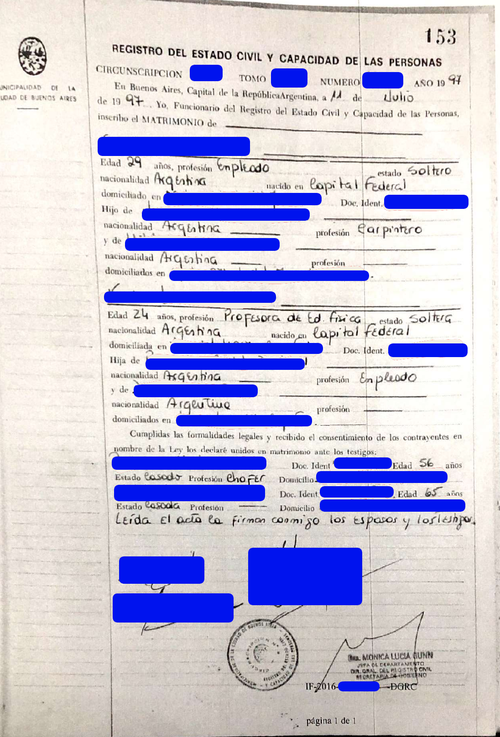 153
REGISTRO DEL ESTADO CIVIL Y CAPACIDAD DE LAS PERSONAS
MUNICIPALIDAD DE LA
CIUDAD DE BUENOS AIRES
CIRCUNSCRIPCION TOMO NUMERO AÑO 1997
En Buenos Aires, Capital de la República Argentina, a 11 de Julio
de 1997. Yo, Funcionario del Registro del Estado Civil y Capacidad de las Personas,
inscribo el MATRIMONIO de
Edad 29 años, profesión Empleado estado Soltero
nacionalidad Argentina nacido en Capital Federal
domiciliado en Doc. Ident.
Hijo de
nacionalidad Argentina profesión Carpintero
y de
nacionalidad Argentina profesión
domiciliados en
Edad 24 años, profesión Profesora de Ed. Física estado Soltera
nacionalidad Argentina nacido en Capital Federal
domiciliada en Doc. Ident.
Hija de
nacionalidad Argentina profesión Empleado
y de
nacionalidad Argentina profesión
domiciliados en
Cumplidas las formalidades legales y recibido el consentimiento de los contrayentes en
nombre de la Ley los declaré unidos en matrimonio ante los testigos.
Doc. Ident Edad 56 años
Estado Casado Profesión Chofer Domicilio
Doc. Ident. Edad 65 años
Estado Casada Profesión Domicilio
Leída el acta la firman conmigo los esposos y los testigos.
Dra. MONICA LUCIA GUNN
JEFA DE DEPARTAMENTO
DIR. GRAL. DEL REGISTRO CIVIL
SECRETARIA DE GOBIERNO
IF-2016- -DGRC
página 1 de 1